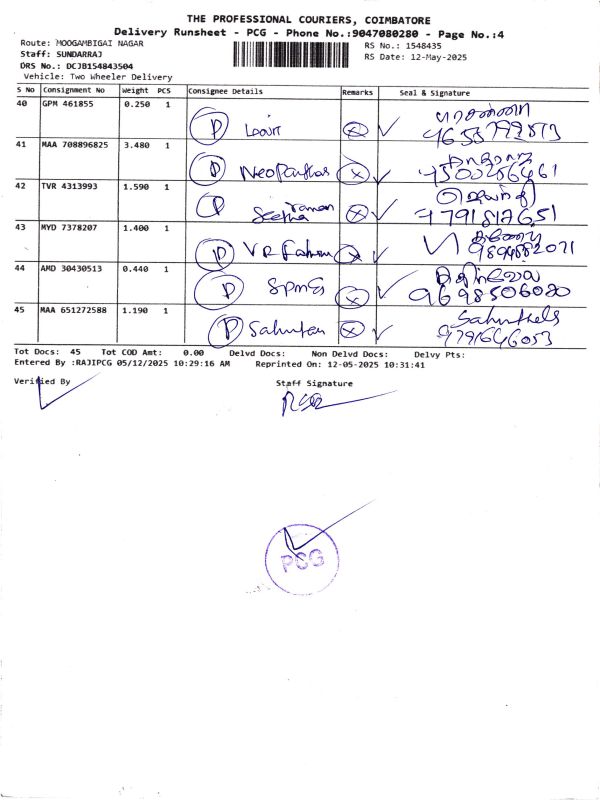 THE PROFESSIONAL COURIERS, COIMBATORE
Delivery Runsheet - PCG - Phone No.:9047080280 - Page No.:4
Route: MOOGAMBIGAI NAGAR
RS No.: 1548435
Staff: SUNDARRAJ
RS Date: 12-May-2025
DRS No.: DCJB154843504
Vehicle: Two Wheeler Delivery
S No Consignment No Weight PCS Consignee Details Remarks Seal & Signature
40 GPM 461855 0.250 1 D
41 MAA 708896825 3.480 1 D
42 TVR 4313993 1.590 1 D Seetha raman 9791817651
43 MYD 7378207 1.400 1 D VR Fashion
44 AMD 30430513 0.440 1 D 9698506080
45 MAA 651272588 1.190 1 D 9791646053
Tot Docs: 45 Tot COD Amt: 0.00 Delvd Docs: Non Delvd Docs: Delvy Pts:
Entered By :RAJIPCG 05/12/2025 10:29:16 AM Reprinted On: 12-05-2025 10:31:41
Verified By Staff Signature
PCG